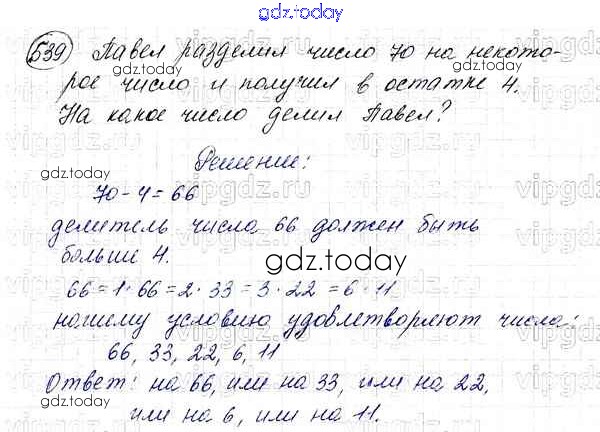 gdz.today
539 Павел разделил число 70 на некото-
рое число и получил в остатке 4.
На какое число делил Павел?
gdz.today
Решение:
gdz.today
70-4=66
делитель числа 66 должен быть
больше 4.
gdz.today
66=1·66=2·33=3·22=6·11
нашему условию удовлетворяют числа:
gdz.today
66, 33, 22, 6, 11
Ответ: на 66, или на 33, или на 22,
gdz.today
или на 6, или на 11.
gdz.today
vipgdz.ru